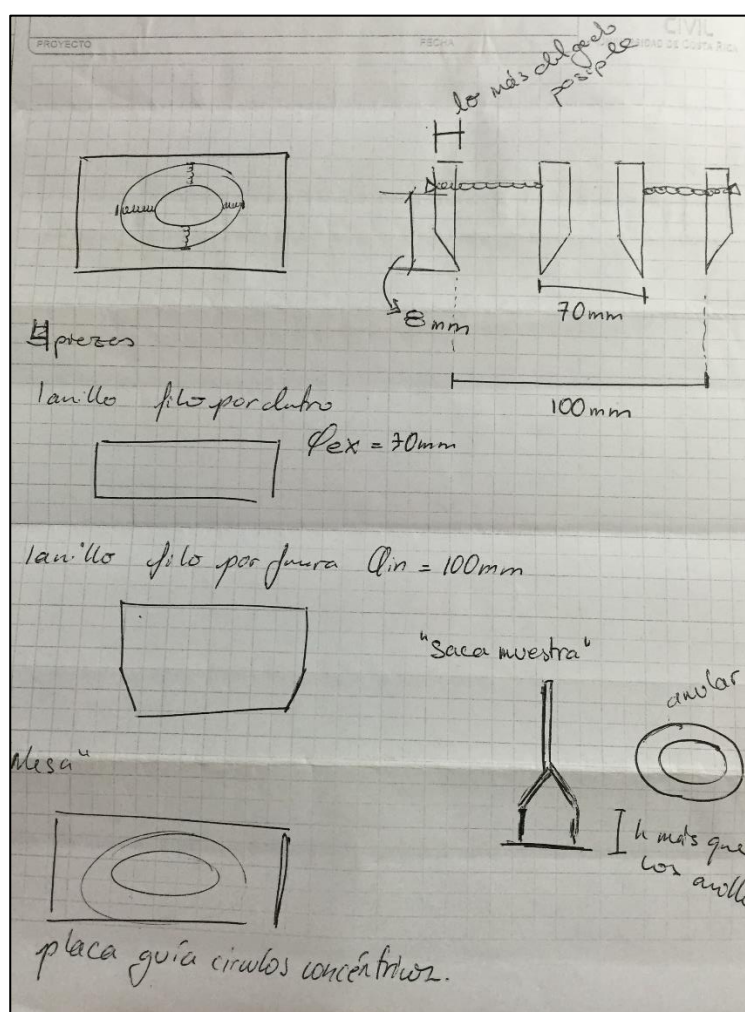 PROYECTO
FECHA
CIVIL
UNIVERSIDAD DE COSTA RICA
lo más delgado
posible
8mm
70mm
100mm
4 piezas
1 anillo filo por dentro
φex = 70mm
1 anillo filo por fuera φin = 100mm
"Saca muestra"
anular
h más que
los anillo
Mesa"
placa guía círculos concéntricos.